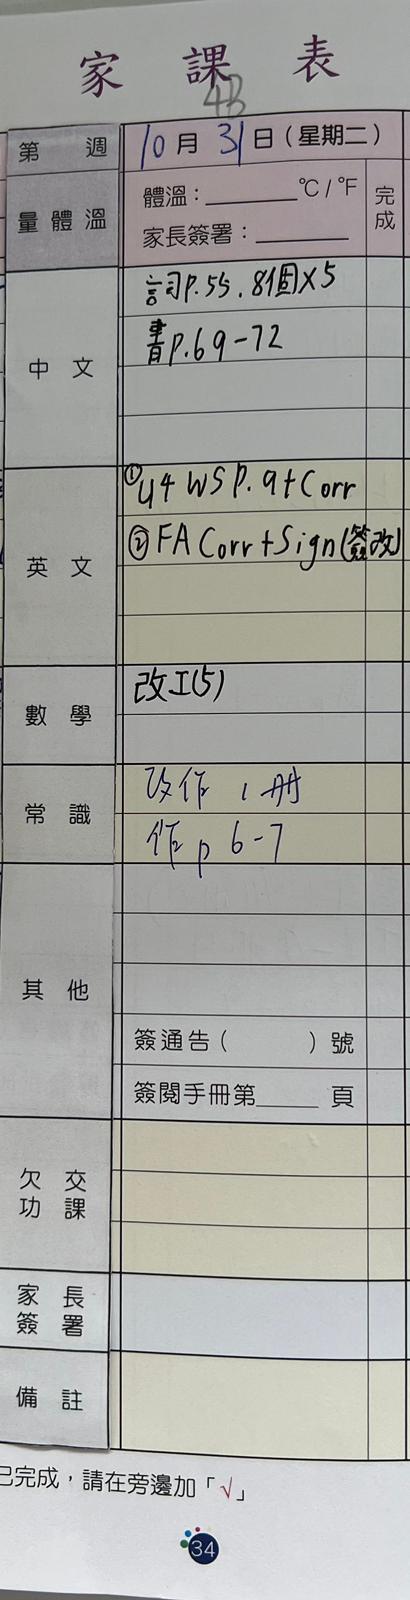 家課表
4B
第 週 10月31日(星期二)
量體溫 體溫:______°C/°F 完成
家長簽署:______
中文 詞P.55.8個X5
書P.69-72
英文 ①U4 WS P.9+Corr
②FA Corr+Sign(簽改)
數學 改工(5)
常識 改作1冊
作p6-7
其他
簽通告( )號
簽閱手冊第____頁
欠交功課
家長簽署
備註
已完成,請在旁邊加「√」
34